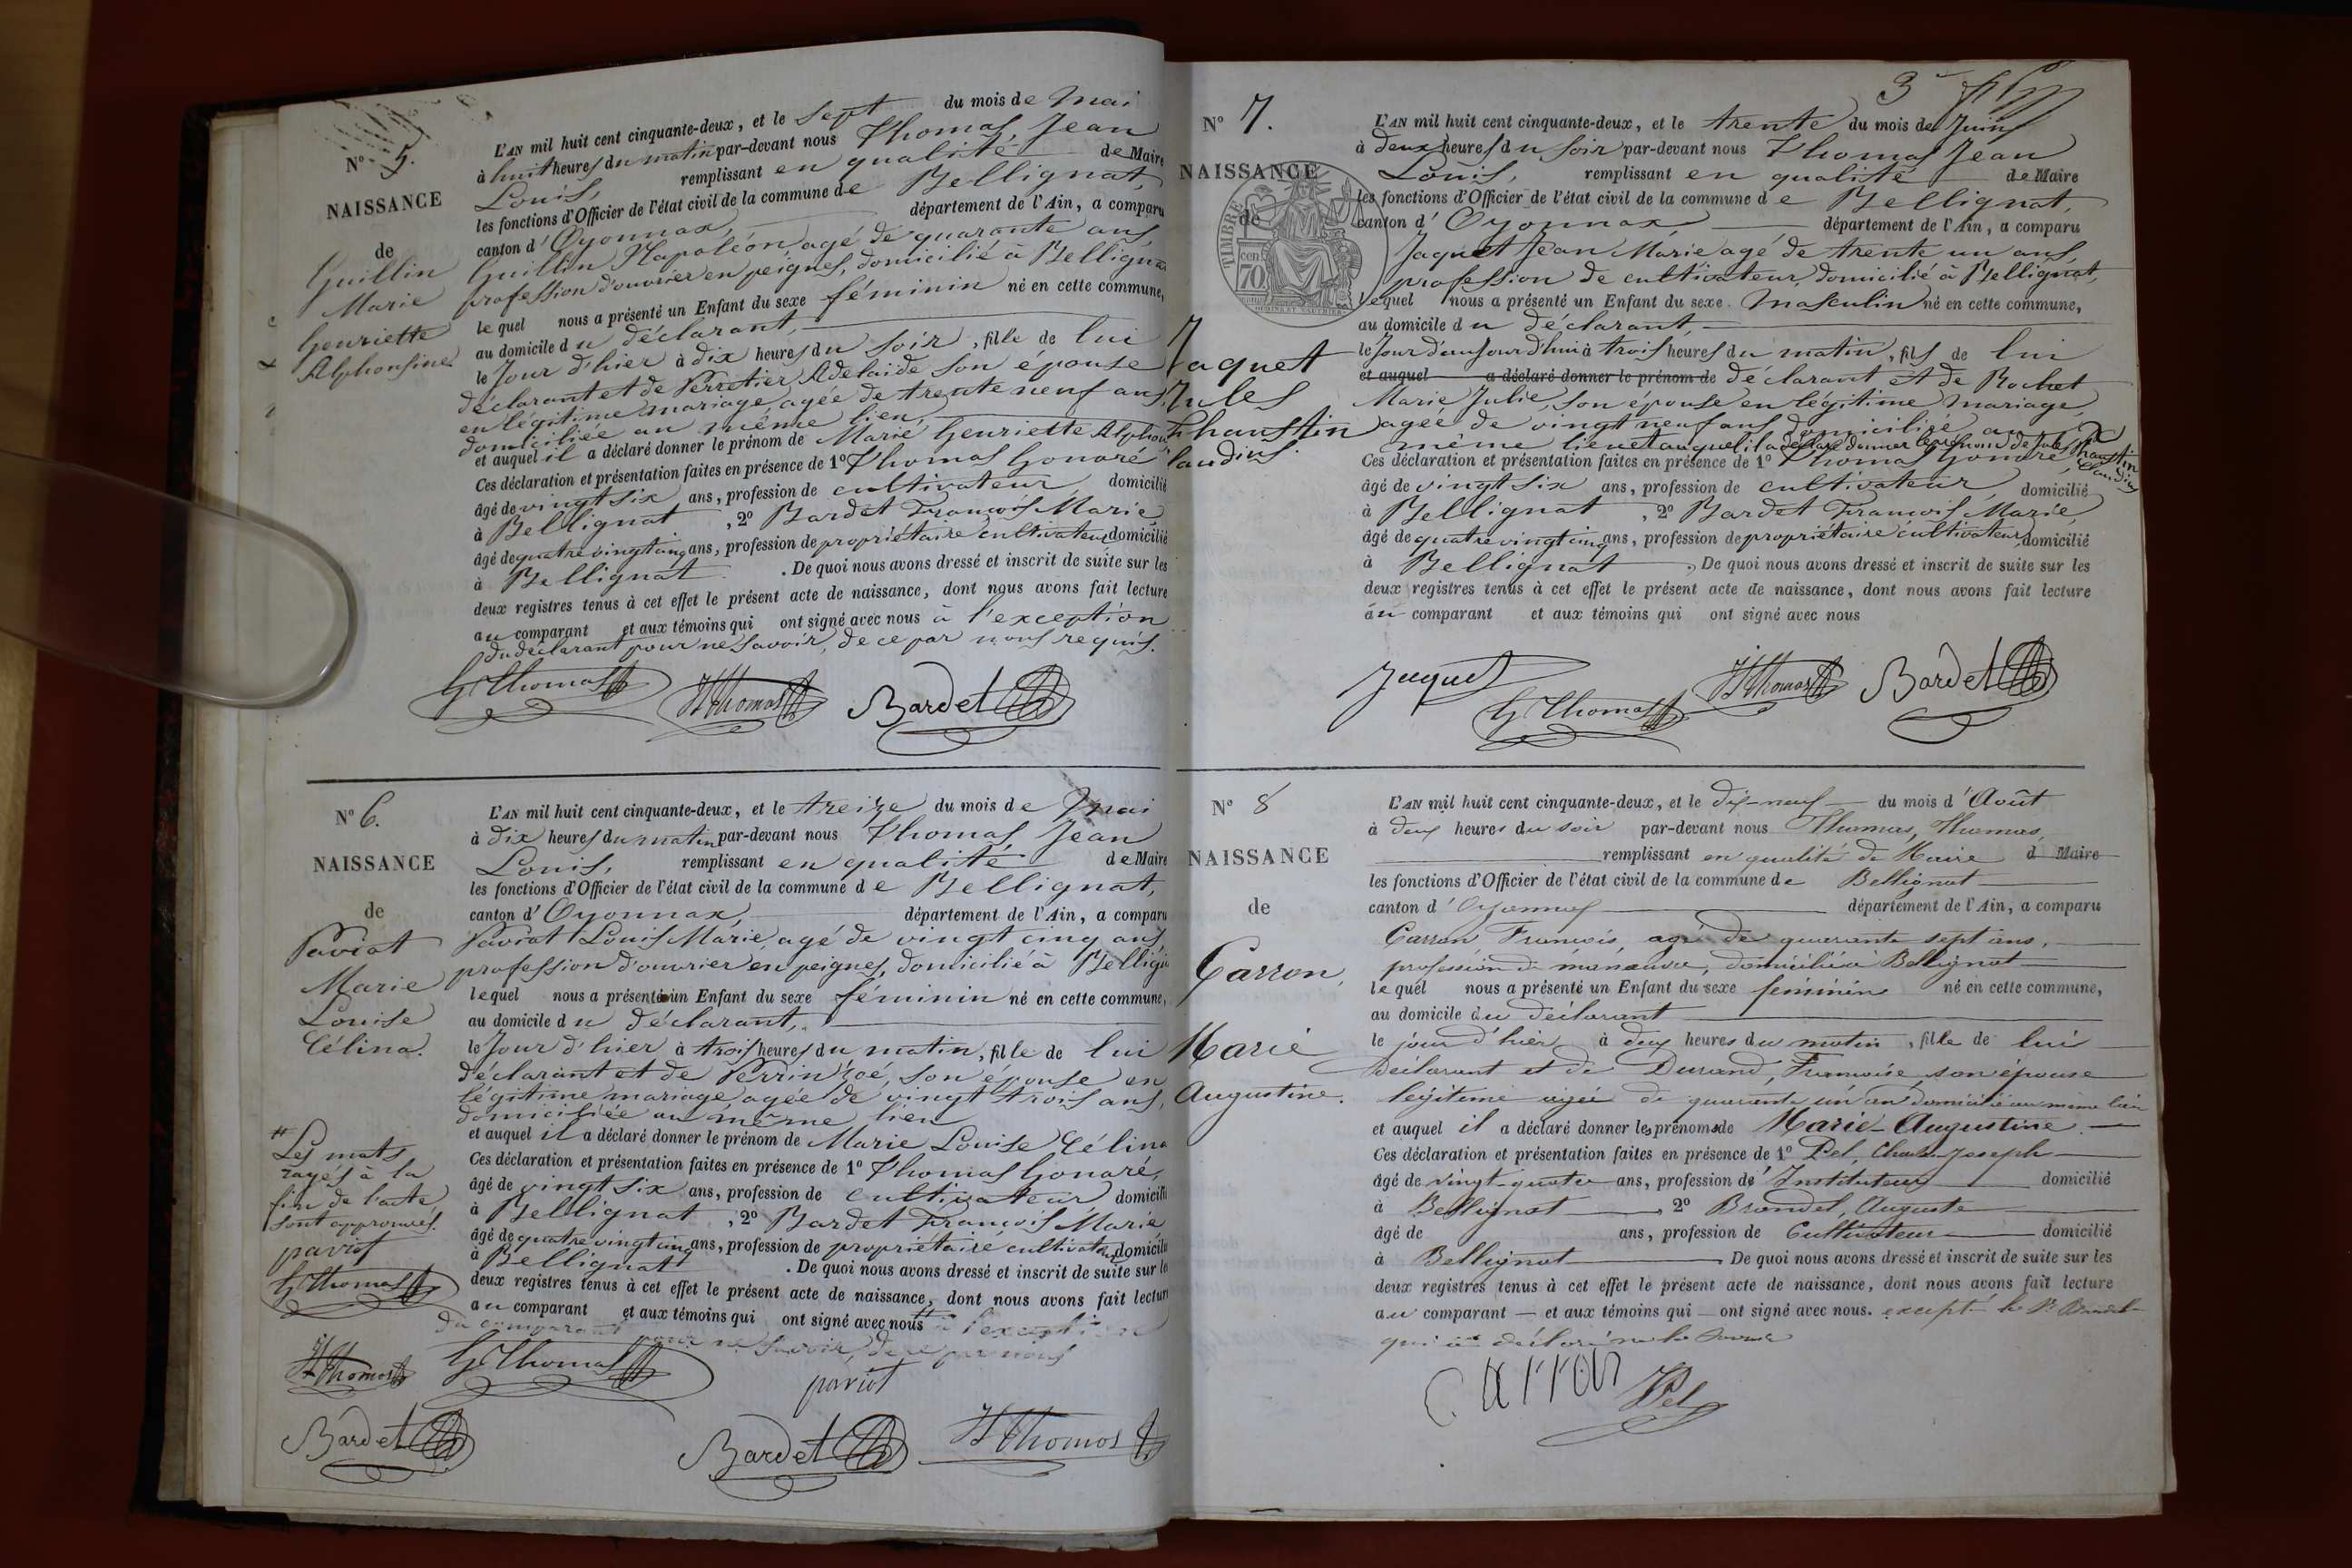 N° 5.
NAISSANCE
de
Guillin
Marie
Henriette
Alphonsine
L'AN mil huit cent cinquante-deux, et le sept du mois de Mai
à huit heures du matin par-devant nous Thomas, Jean
Louis, remplissant en qualité de Maire
les fonctions d'Officier de l'état civil de la commune de Bellignat,
canton d'Oyonnax, département de l'Ain, a comparu
Guillin Napoléon, agé de quarante ans,
profession d'ouvrier en peignes, domicilié à Bellignat
lequel nous a présenté un Enfant du sexe féminin né en cette commune,
au domicile du déclarant,
le Jour d'hier à dix heures du soir, fille de lui
déclarant et de Perretier Adelaide son épouse
en légitime mariage, agée de trente neuf ans,
domiciliée au même lieu,
et auquel il a déclaré donner le prénom de Marie Henriette Alphon
Ces déclaration et présentation faites en présence de 1° Thomas Honoré
âgé de vingt six ans, profession de cultivateur domicilié
à Bellignat, 2° Bardet François Marie,
âgé de quatre vingt cinq ans, profession de propriétaire cultivateur domicilié
à Bellignat. De quoi nous avons dressé et inscrit de suite sur les
deux registres tenus à cet effet le présent acte de naissance, dont nous avons fait lecture
au comparant et aux témoins qui ont signé avec nous à l'exception
du déclarant pour ne savoir, de ce par nous requis.
H Thomas JL Thomas Bardet
N° 6.
NAISSANCE
de
Paviot
Marie
Louise
Célina.
L'AN mil huit cent cinquante-deux, et le treize du mois de Mai
à dix heures du matin par-devant nous Thomas, Jean
Louis, remplissant en qualité de Maire
les fonctions d'Officier de l'état civil de la commune de Bellignat,
canton d'Oyonnax, département de l'Ain, a comparu
Paviot Louis Marie, agé de vingt cinq ans
profession d'ouvrier en peignes, domicilié à Bellign
lequel nous a présenté un Enfant du sexe féminin né en cette commune,
au domicile du déclarant,
le Jour d'hier à trois heures du matin, fille de lui
déclarant et de Perrin Zoé, son épouse en
légitime mariage, agée de vingt trois ans,
domiciliée au même lieu
et auquel il a déclaré donner le prénom de Marie Louise Célina
Ces déclaration et présentation faites en présence de 1° Thomas Honoré,
âgé de vingt six ans, profession de cultivateur domicilié
à Bellignat, 2° Bardet François Marie
âgé de quatre vingt cinq ans, profession de propriétaire cultivateur domicilié
à Bellignat. De quoi nous avons dressé et inscrit de suite sur les
deux registres tenus à cet effet le présent acte de naissance, dont nous avons fait lecture
au comparant et aux témoins qui ont signé avec nous # à l'exception
du comparant pour ne savoir, de ce par nous
# Les mots
rayés à la
fin de l'acte
sont approuvés.
paviot
H Thomas
JL Thomas H Thomas paviot
Bardet Bardet JL Thomas
3
N° 7.
NAISSANCE
de
Jaquet
Jules
Phaustin
laudius.
TIMBRE
70 cen
L'AN mil huit cent cinquante-deux, et le trente du mois de Juin
à deux heures du soir par-devant nous Thomas Jean
Louis, remplissant en qualité de Maire
les fonctions d'Officier de l'état civil de la commune de Bellignat,
canton d'Oyonnax, département de l'Ain, a comparu
Jaquet Jean Marie agé de trente un ans,
profession de cultivateur, domicilié à Bellignat,
lequel nous a présenté un Enfant du sexe masculin né en cette commune,
au domicile du déclarant,
le Jour d'aujourd'hui à trois heures du matin, fils de lui
et auquel a déclaré donner le prénom de déclarant et de Rochet
Marie Julie, son épouse en légitime mariage,
agée de vingt neuf ans, domiciliée au
même lieu et auquel il a déclaré donner le prénom de Jules Phaustin
Claudius
Ces déclaration et présentation faites en présence de 1° Thomas Honoré,
âgé de vingt six ans, profession de cultivateur domicilié
à Bellignat, 2° Bardet François Marie,
âgé de quatre vingt cinq ans, profession de propriétaire cultivateur domicilié
à Bellignat. De quoi nous avons dressé et inscrit de suite sur les
deux registres tenus à cet effet le présent acte de naissance, dont nous avons fait lecture
au comparant et aux témoins qui ont signé avec nous
Jaquet H Thomas JL Thomas Bardet
N° 8
NAISSANCE
de
Carron,
Marie
Augustine.
L'AN mil huit cent cinquante-deux, et le dix-neuf du mois d'Août
à deux heures du soir par-devant nous Thomas, Thomas,
remplissant en qualité de Maire d Maire
les fonctions d'Officier de l'état civil de la commune de Bellignat
canton d'Oyonnax département de l'Ain, a comparu
Carron, François, agé de quarante sept ans,
profession de manœuvre, domicilié à Bellignat
lequel nous a présenté un Enfant du sexe féminin né en cette commune,
au domicile du déclarant
le jour d'hier à deux heures du matin, fille de lui
déclarant et de Durand, Françoise, son épouse
légitime agée de quarante un an domicilié au même lieu
et auquel il a déclaré donner les prénoms de Marie-Augustine.
Ces déclaration et présentation faites en présence de 1° Pel, Charles Joseph
âgé de vingt-quatre ans, profession de Instituteur domicilié
à Bellignat 2° Brondel, Auguste
âgé de ans, profession de Cultivateur domicilié
à Bellignat De quoi nous avons dressé et inscrit de suite sur les
deux registres tenus à cet effet le présent acte de naissance, dont nous avons fait lecture
au comparant et aux témoins qui ont signé avec nous. excepté le Sr Brondel
qui a déclaré ne le savoir
carron Pel